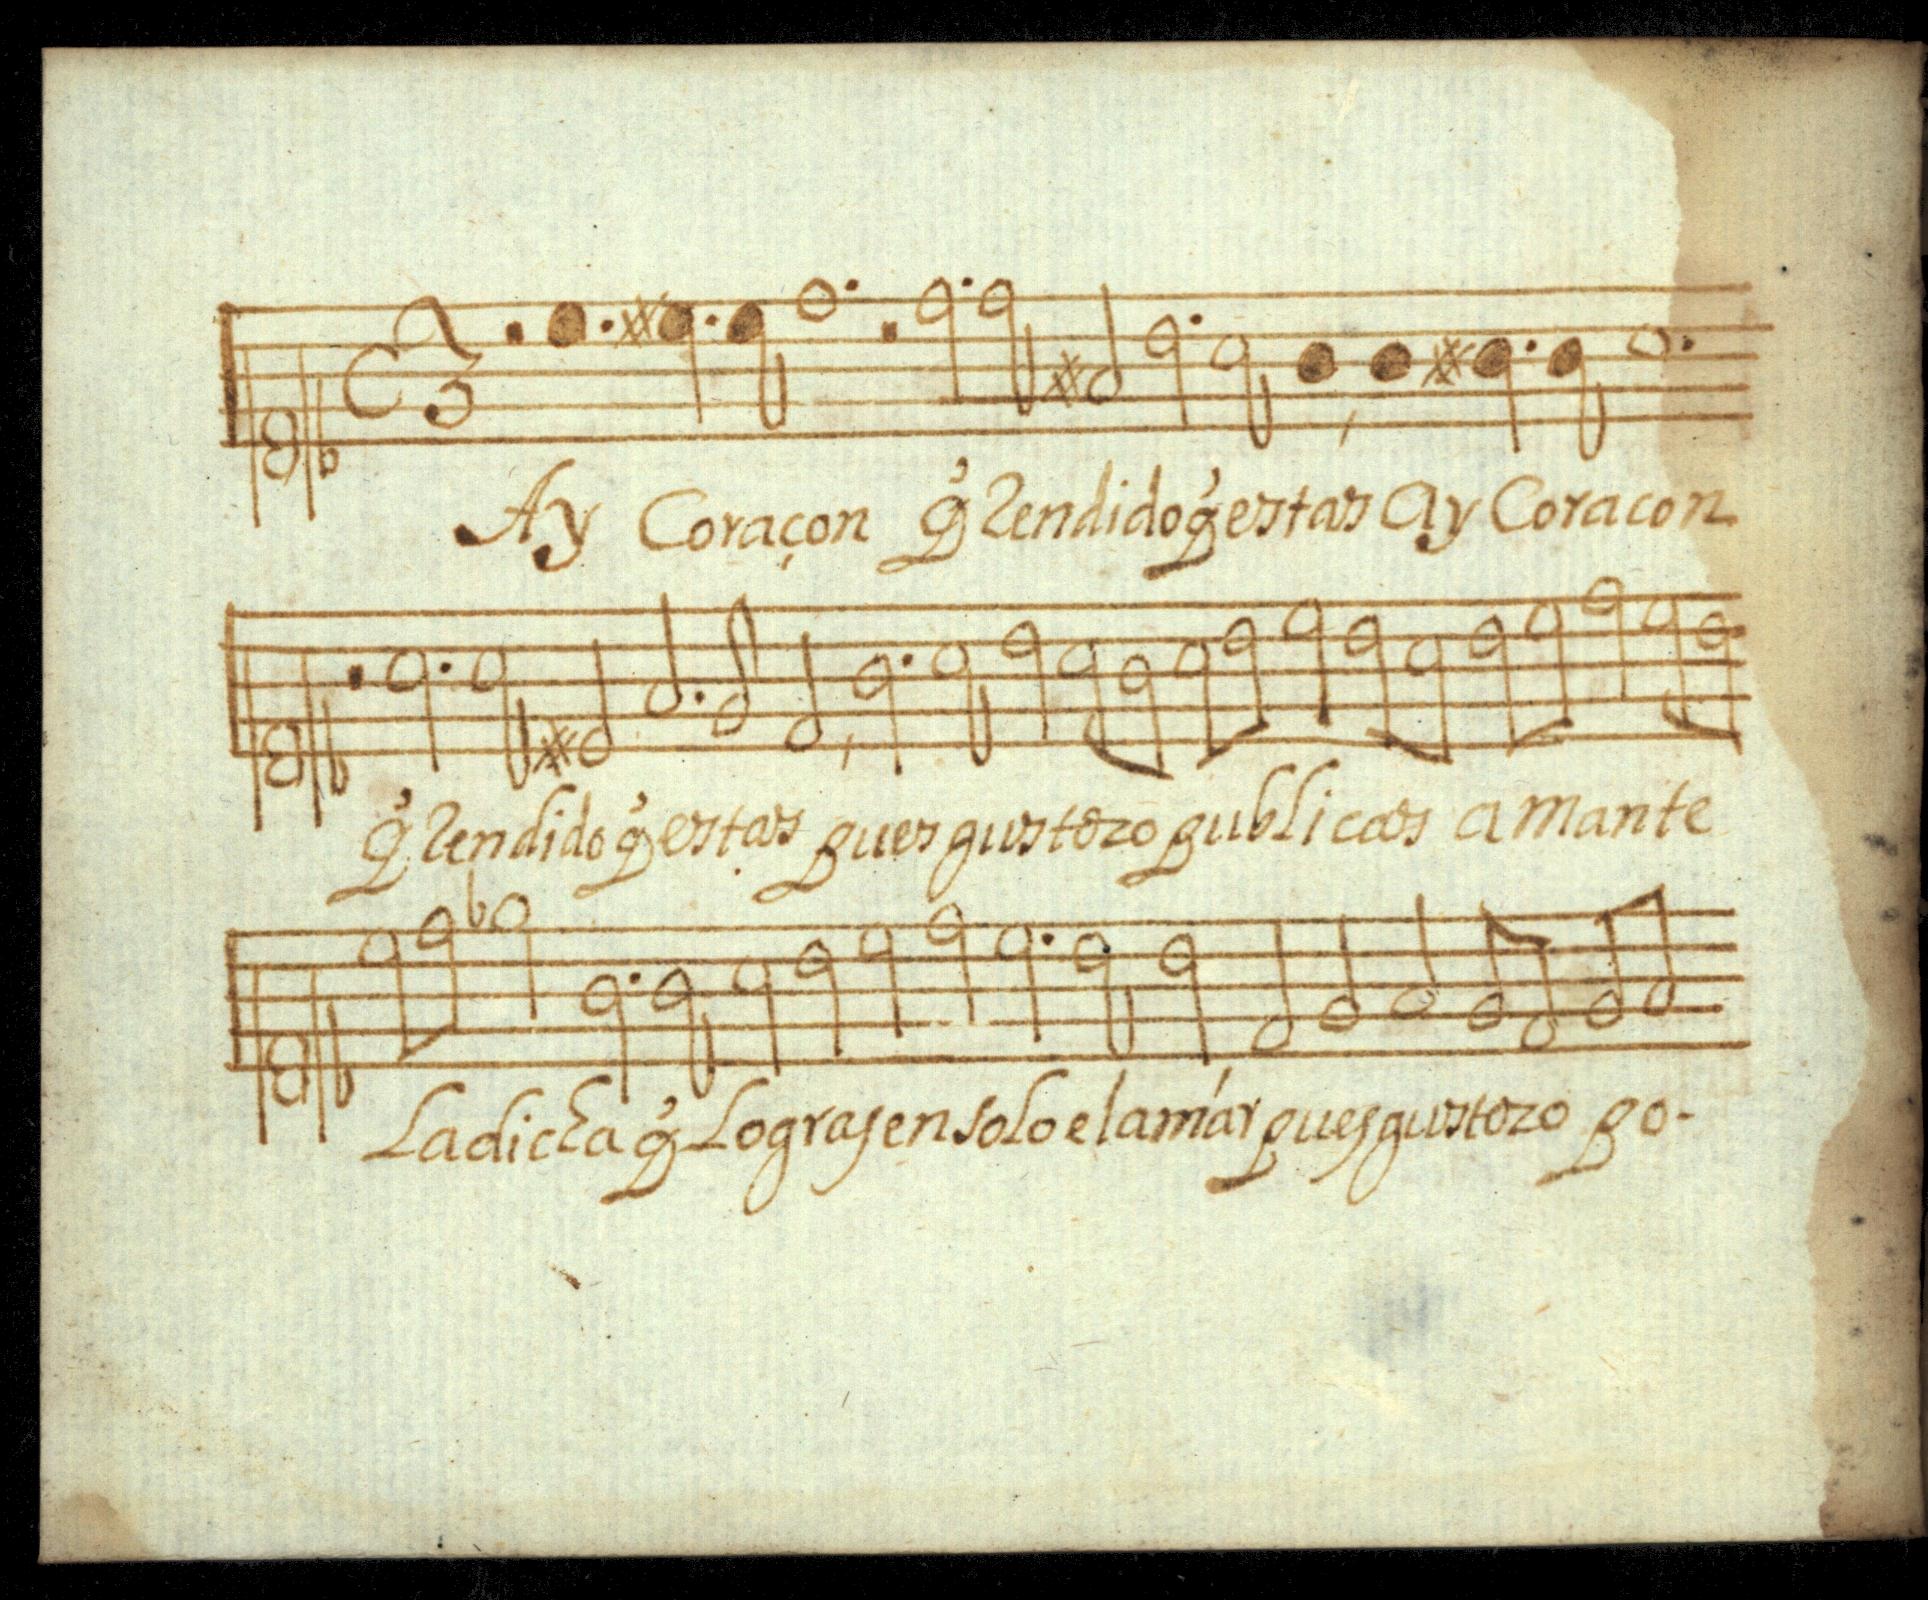 Ay Coraçon q̃ Rendido q̃ estas Ay Coracon
q̃ Rendido q̃ estas pues gustozo publicas amante
La dicha q̃ Logras en solo el amár pues gustozo po-